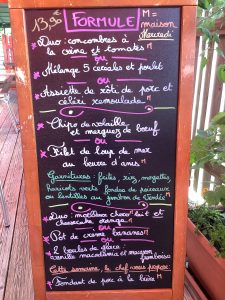 13,90€ FORMULE M = maison
Mercredi
Duo concombres à
la crème et tomates M
ou
Mélange 5 céréales et poulet
ou
Assiette de rôti de porc et
céleri remoulade M
Chips de volaille
et merguez de bœuf
ou
Filet de loup de mer
au beurre d'anis M
Garnitures : frites, riz, mogettes
haricots verts, fondue de poireaux
ou lentilles au jambon de Vendée
Duo : moelleux choco lait et
cheesecake orange M
ou
Pot de crème bananes M
ou
2 boules de glace :
vanille macadamia et macaron
framboise
Cette semaine, le chef vous propose :
Fondant de porc à la bière M